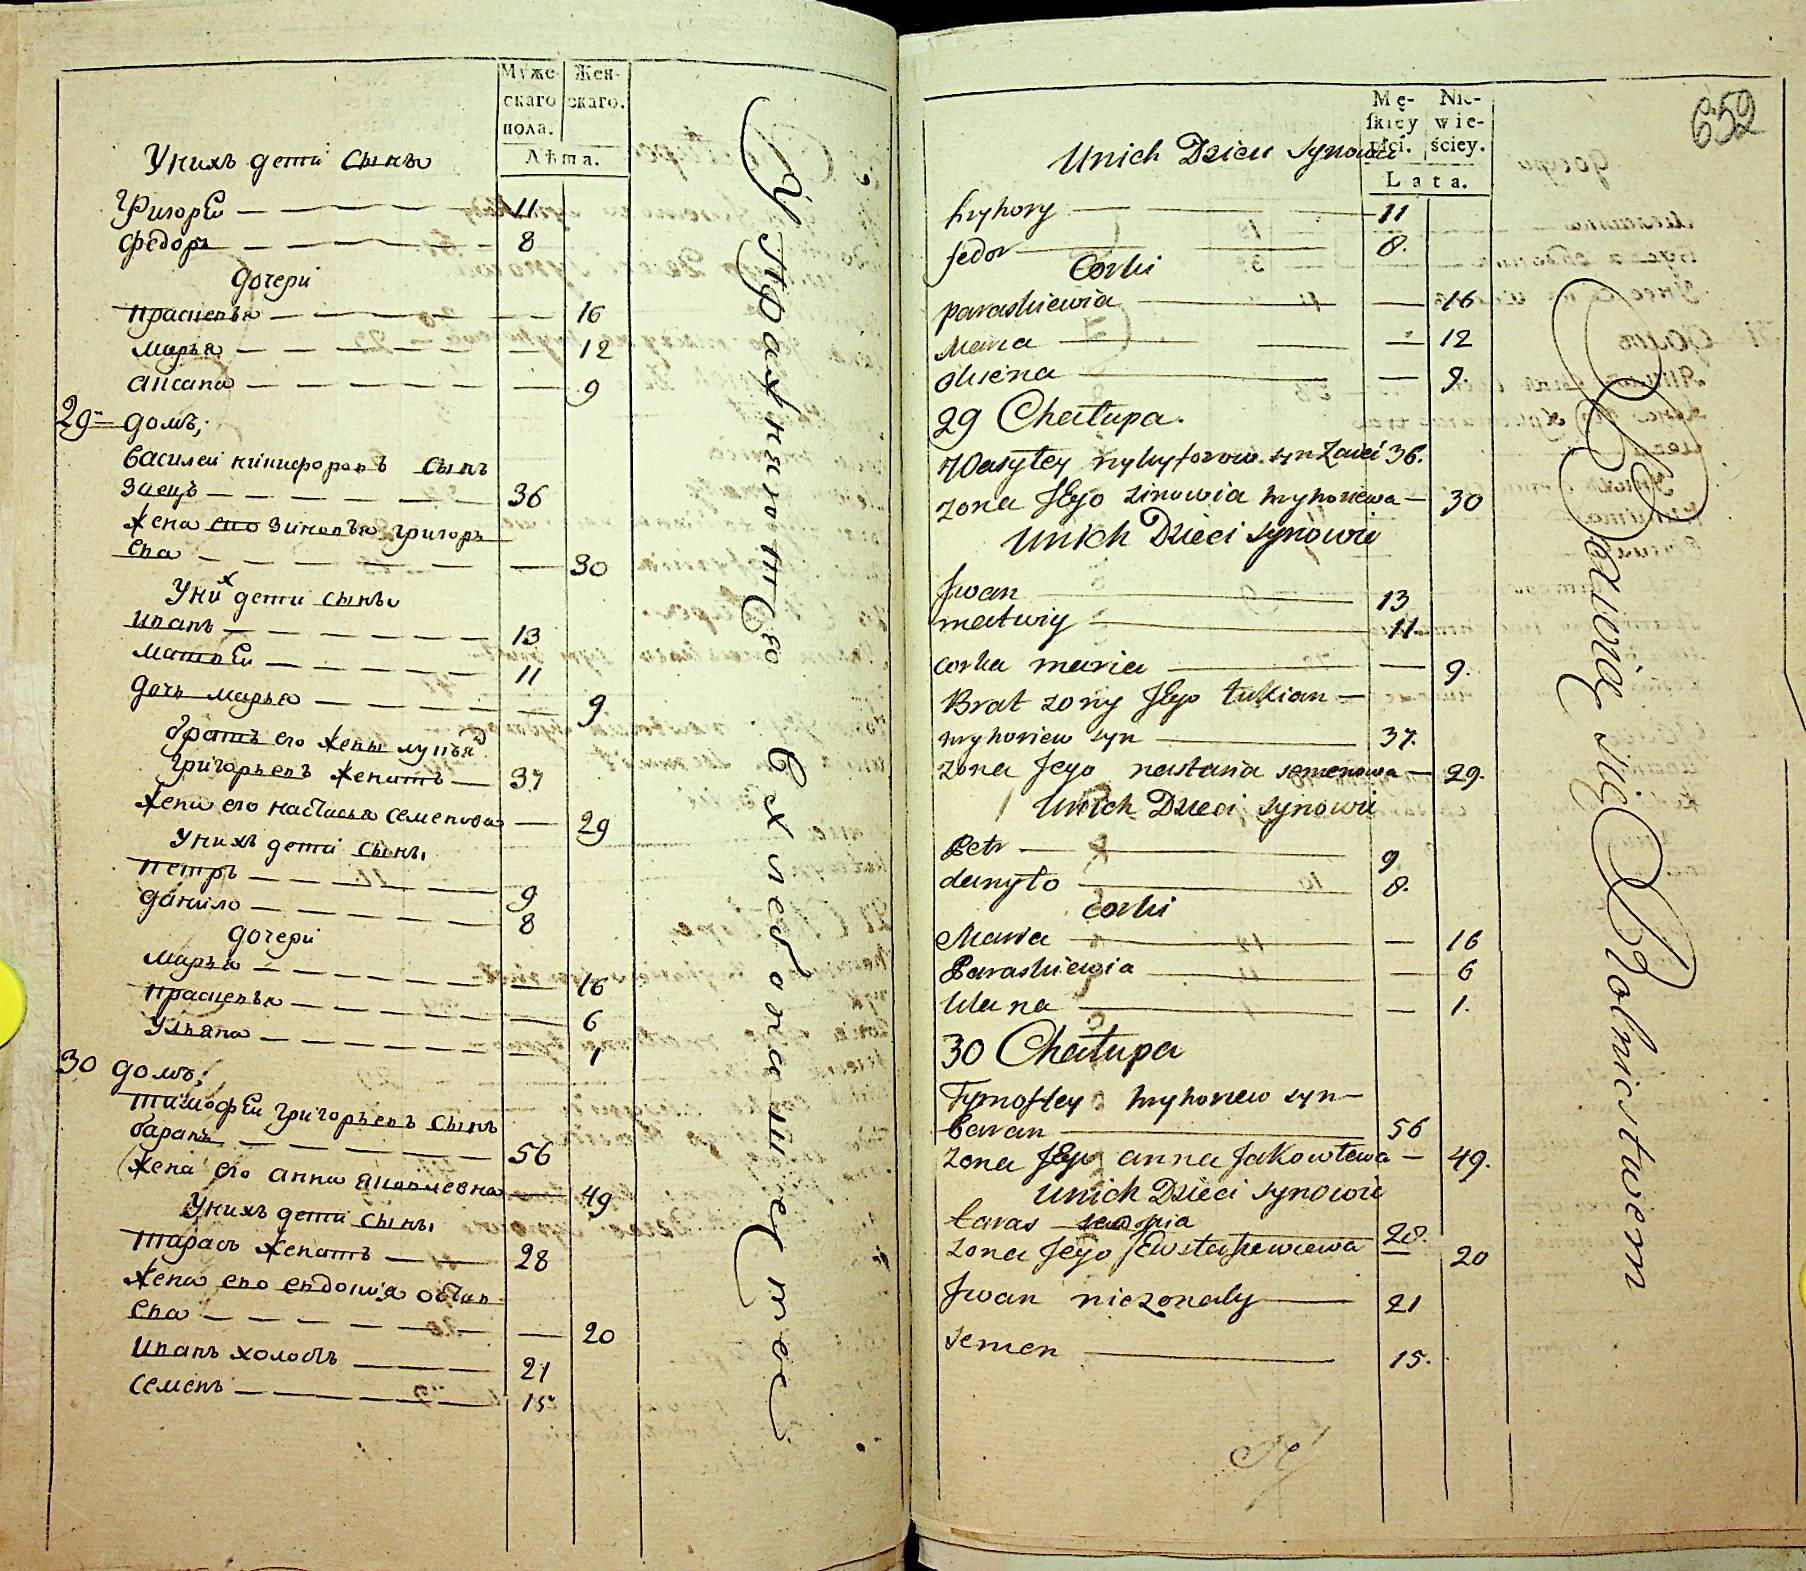 Муже-
скаго
пола.
Жен-
скаго.
Лѣта.
Унихъ дети сынъи
Григорей 11
Федоръ 8
дочери
Прасцевъя 16
Маръя 12
Аксана 9
29 домъ;
Василей никифоровъ сынъ
Заецъ 36
Жена его Зиновъя григоръ
ева 30
Уних дети сынъи
Иванъ 13
Матвей 11
дочь маръя 9
братъ его жены лукъяд
Григоръевъ женатъ 37
Жена его настасъя семенова 29
Унихъ дети сынъи
Петръ 9
данило 8
дочери
Маръя 16
Прасцевъя 6
Улъяна 1
30 домъ;
Тимофей григоръевъ сынъ
баранъ 56
Жена его анна яковлевна 49
Унихъ дети сынъи
Тарасъ женатъ 28
Жена его евдокия остап
ева 20
Иванъ холостъ 21
Семенъ 15
Упражняются в хлебопашестве
Mę-
skiey
płci.
Nie-
wie-
ściey.
Lata.
652
Unich Dzieci Synowie
hryhory 11
fedor 8.
Corki
paraskiewia 16
Maria 12
oksena 9.
29 Chałupa.
Wasyley nykyforow. syn Zaieć 36.
zona Jego zinowia hryhoriewa 30
Unich Dzieci synowie
Jwan 13
matwiy 11.
corka maria 9.
Brat zony Jego łukian
hryhoriew syn 37.
zona Jego nastasia semenowa 29.
Unich Dzieci synowie
Petr 9
danyło 8.
corki
Maria 16
Paraskiewia 6
Ulana 1.
30 Chałupa
Tymofiey hryhoriew syn
baran 56
zona Jego anna Jakowlewa 49.
Unich Dzieci synowie
taras 28.
zona Jego Ewstafiewiewa 20
Jwan niezonaty 21
Semen 15.
Bawią się Rolnictwem